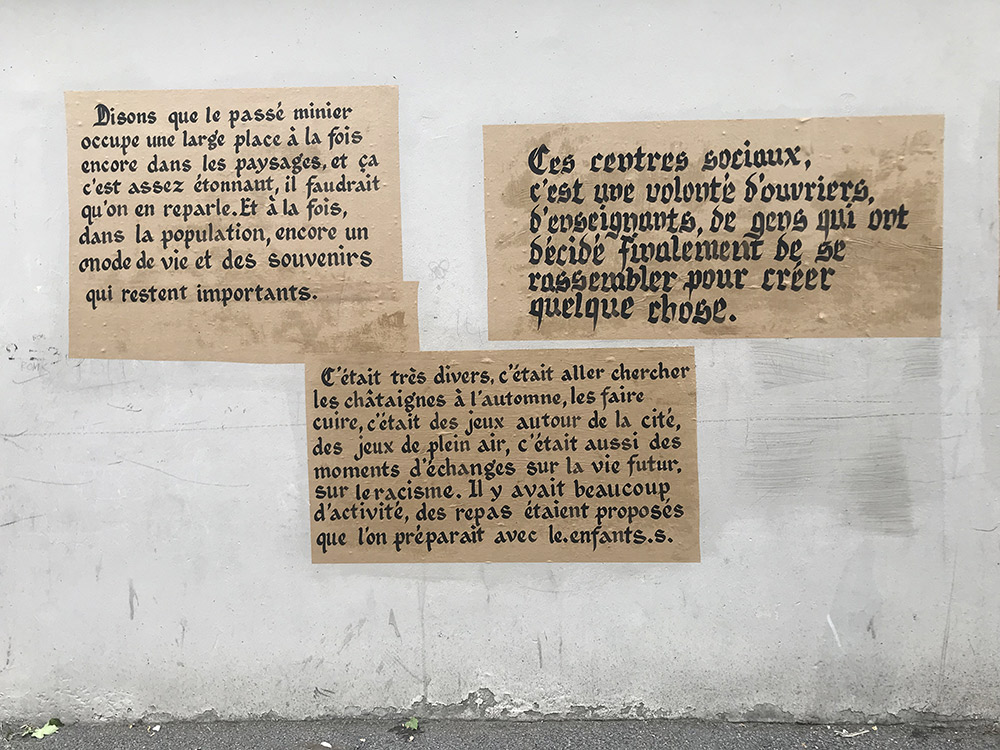 Disons que le passé minier
occupe une large place à la fois
encore dans les paysages, et ça
c'est assez étonnant, il faudrait
qu'on en reparle. Et à la fois,
dans la population, encore un
mode de vie et des souvenirs
qui restent importants.
Ces centres sociaux,
c'est une volonté d'ouvriers,
d'enseignants, de gens qui ont
décidé finalement de se
rassembler pour créer
quelque chose.
C'était très divers, c'était aller chercher
les châtaignes à l'automne, les faire
cuire, c'était des jeux autour de la cité,
des jeux de plein air, c'était aussi des
moments d'échanges sur la vie futur,
sur le racisme. Il y avait beaucoup
d'activité, des repas étaient proposés
que l'on préparait avec le.enfants.s.